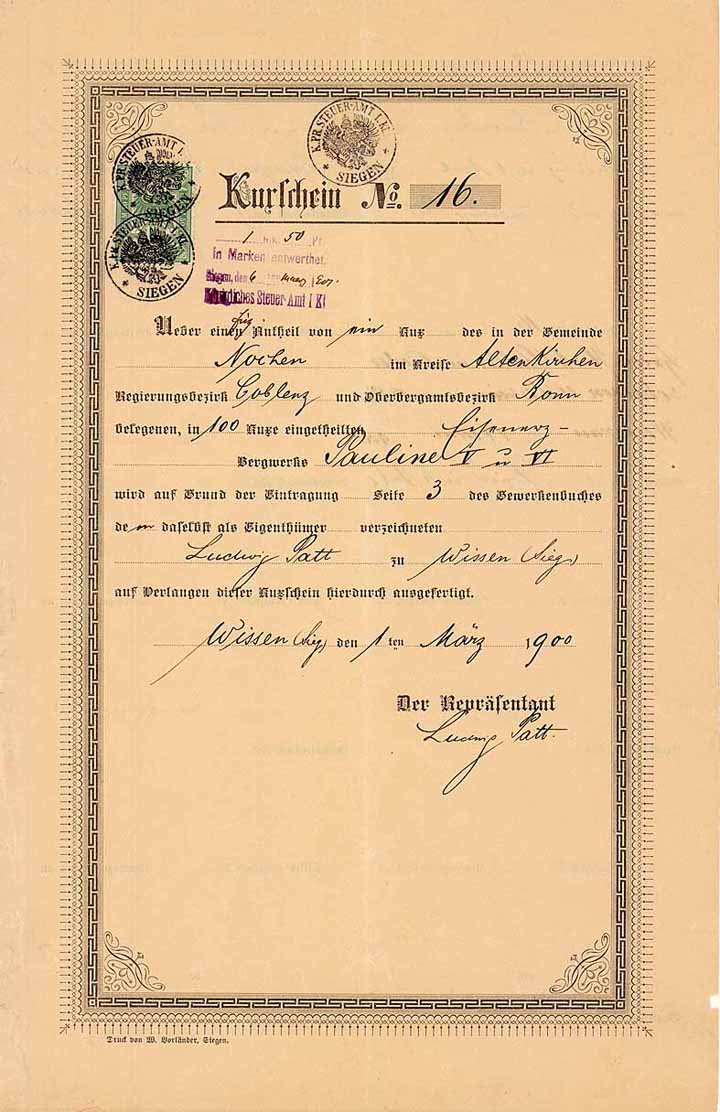 K. PR. STEUER-AMT I. Kl.
SIEGEN
K. PR. STEUER-AMT I.
SIEGEN
K. PR. STEUER-AMT I. Kl.
SIEGEN
Kuxschein No. 16.
1 Mk. 50 Pf.
in Marken entwerthet.
Siegen, den 6 März 190
Königliches Steuer-Amt I Kl
Ueber einen Antheil von ein Kux des in der Gemeinde
Nochen im Kreise Altenkirchen
Regierungsbezirk Coblenz und Oberbergamtsbezirk Bonn
belegenen, in 100 Kuxe eingetheilten Eisenerz-
Bergwerks Pauline V u VI
wird auf Grund der Eintragung Seite 3 des Gewerkenbuches
dem daselbst als Eigenthümer verzeichneten
Ludwig Patt zu Wissen (Sieg)
auf Verlangen dieser Kuxschein hierdurch ausgefertigt.
Wissen (Sieg) den 1ten März 1900
Der Repräsentant
Ludwig Patt.
Druck von W. Vorländer, Siegen.